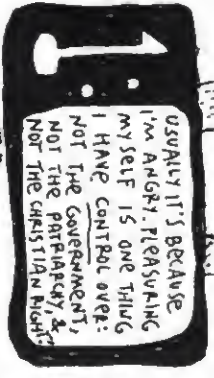 USUALLY IT'S BECAUSE
I'M ANGRY. PLEASURING
MYSELF IS ONE THING
I HAVE CONTROL OVER:
NOT THE GOVERNMENT,
NOT THE PATRIARCHY, &
NOT THE CHRISTIAN RIGHT.